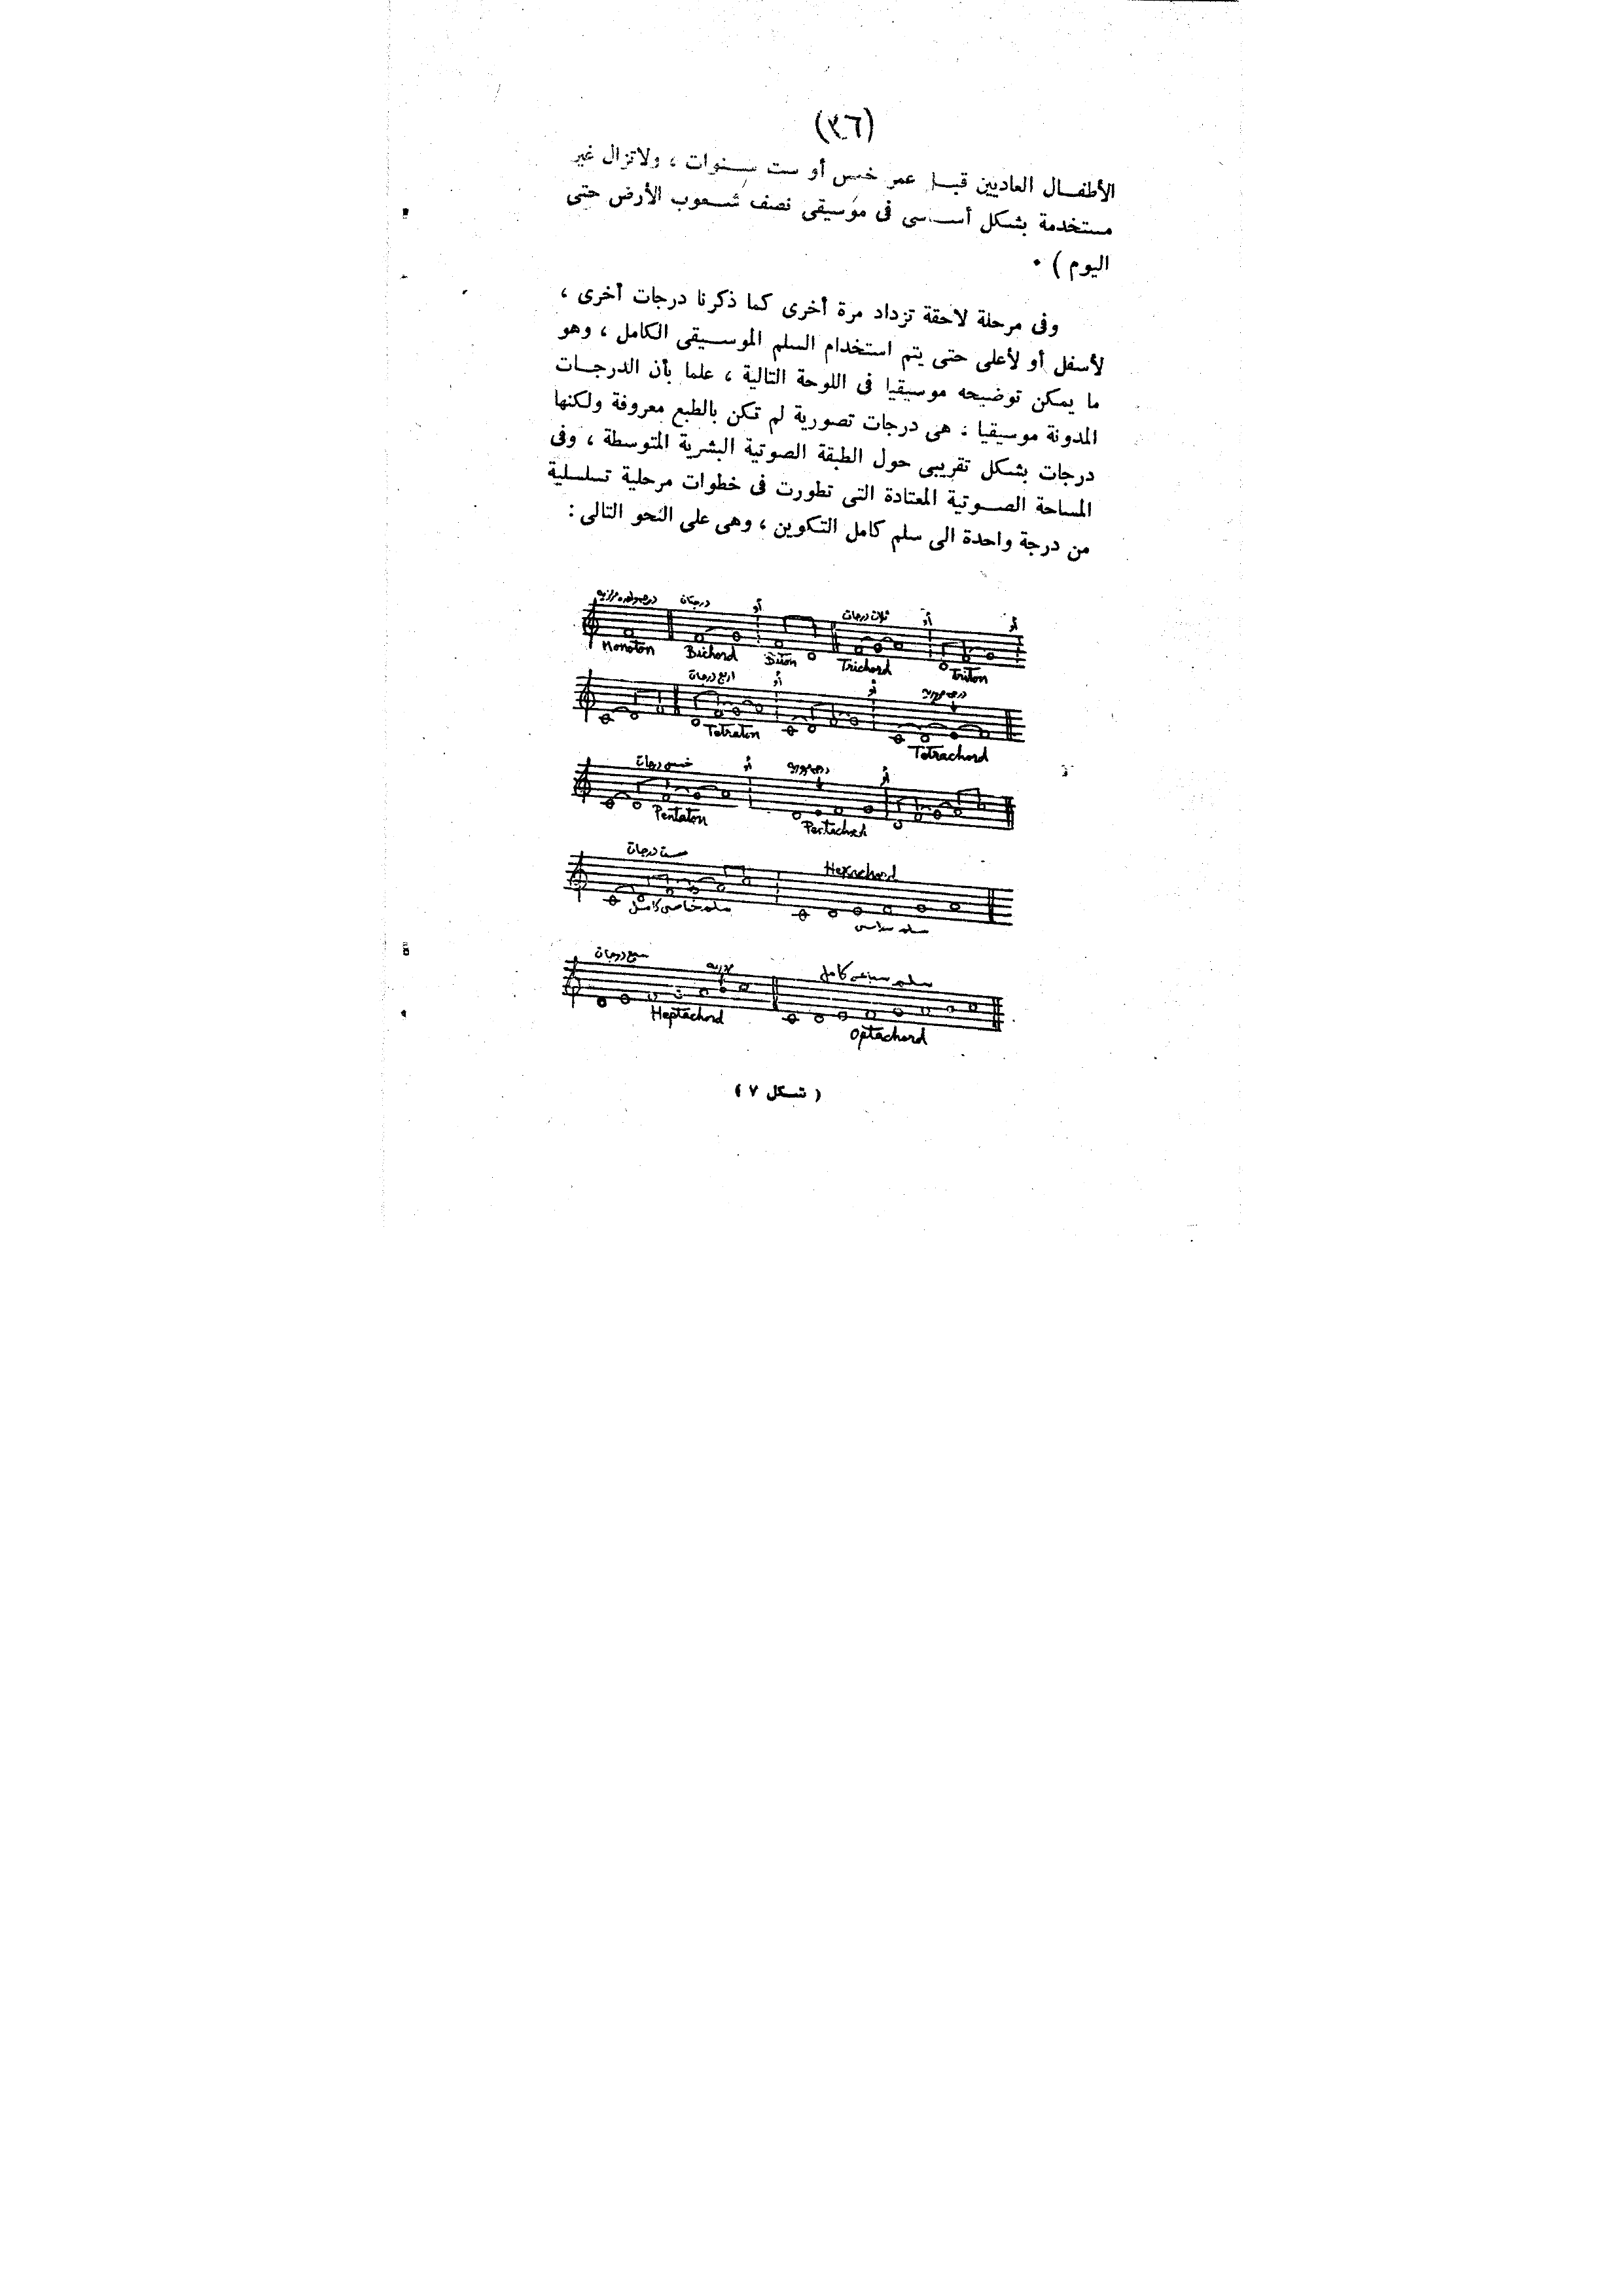 (٣٦)
الأطفـــال العاديين قبـــل عمر خمس أو ست ســـنوات ، ولاتزال غير
مستخدمة بشكل أســـاسى فى موسيقى نصف شـــعوب الأرض حتى
اليوم ) ٠
وفى مرحلة لاحقة تزداد مرة أخرى كما ذكرنا درجات أخرى ،
لأسفل أو لأعلى حتى يتم استخدام السلم الموســـيقى الكامل ، وهو
ما يمكن توضيحه موسيقيا فى اللوحة التالية ، علما بأن الدرجـــات
المدونة موسيقيا : هى درجات تصورية لم تكن بالطبع معروفة ولكنها
درجات بشكل تقريبى حول الطبقة الصوتية البشرية المتوسطة ، وفى
المساحة الصـــوتية المعتادة التى تطورت فى خطوات مرحلية تسلسلية
من درجة واحدة الى سلم كامل التكوين ، وهى على النحو التالى :
درجتان أو ثلاث درجات أو أو
Monoton Bichord Biton Trichord Triton
أربع درجات أو أو
Tetraton Tetrachord
خمس درجات أو أو
Pentaton Pentachord
ست درجات Hexachord
سلم خماسى كامل سلم سداسى
سبع درجات سلم سباعى كامل
Heptachord Optachord
( شكل ٧ )